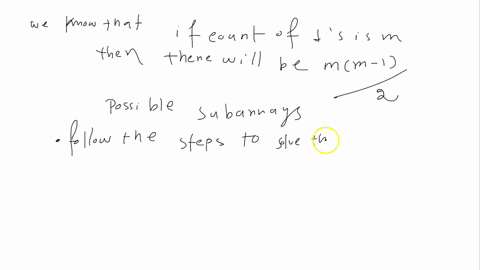 we know that if count of 1's is m
then there will be m(m-1)
2
possible subarrays
• follow the steps to solve th